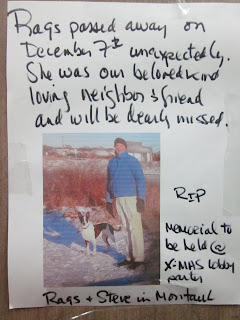 Rags passed away on
December 7th unexpectedly.
She was our beloved kind
loving neighbor & friend
and will be dearly missed.
RIP
Memorial to
be held @
X-MAS lobby
party
Rags + Steve in Montauk